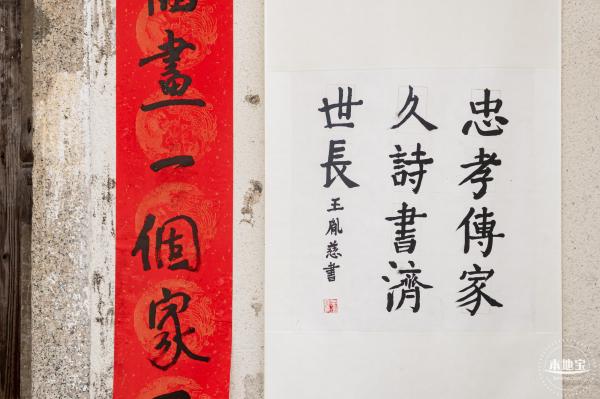 忠孝傳家
久詩書濟
世長
王胤慈書
畫一個家
本地宝